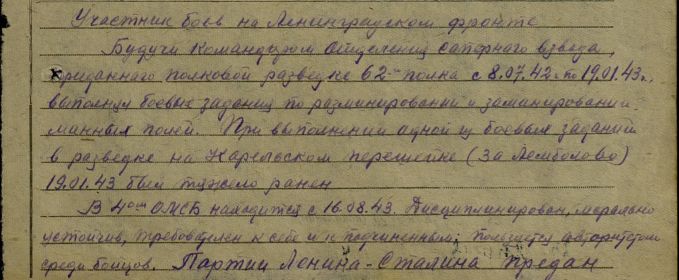 Участник боев на Ленинградском фронте
Будучи командиром отделения саперного взвода,
приданного полковой разведке 62го полка с 8.07.42 по 19.01.43г.,
выполнял боевые задания по разминировании и заминировании
минных полей. При выполнении одной из боевых заданий
в разведке на Карельском перешейке (за Лемболово)
19.01.43 был тяжело ранен
В 4ом ОЖСБ находится с 16.08.43. Дисциплинирован, морально
устойчив, требователен к себе и к подчиненным; пользуется авторитетом
среди бойцов. Партии Ленина-Сталина предан